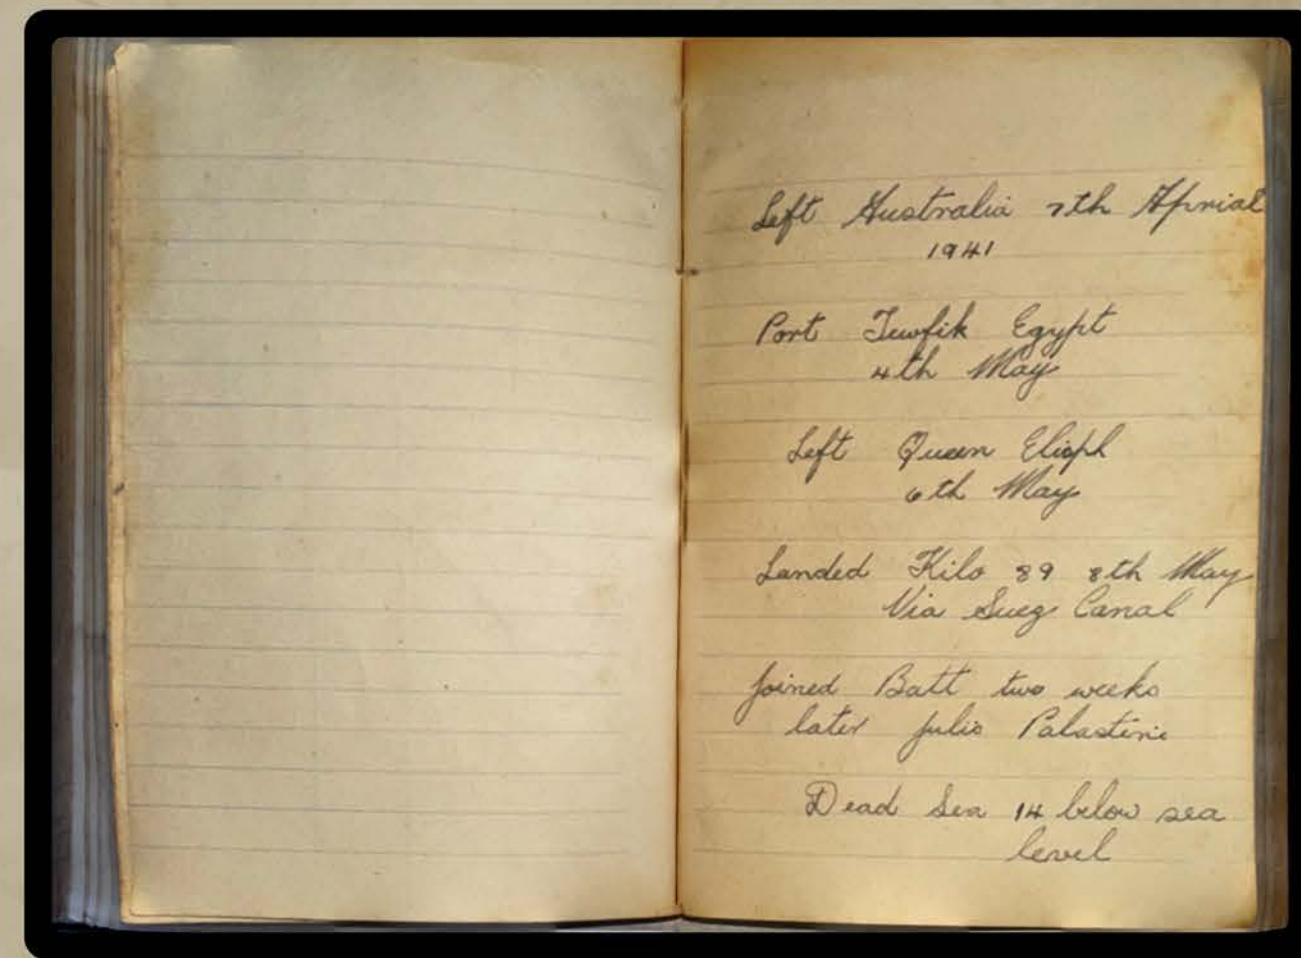 Left Australia 7th Aprial
1941
Port Tewfik Egypt
4th May
Left Queen Elisph
6th May
Landed Kilo 89 8th May
Via Suez Canal
Joined Batt two weeks
later Julis Palastine
Dead Sea 14 below sea
level